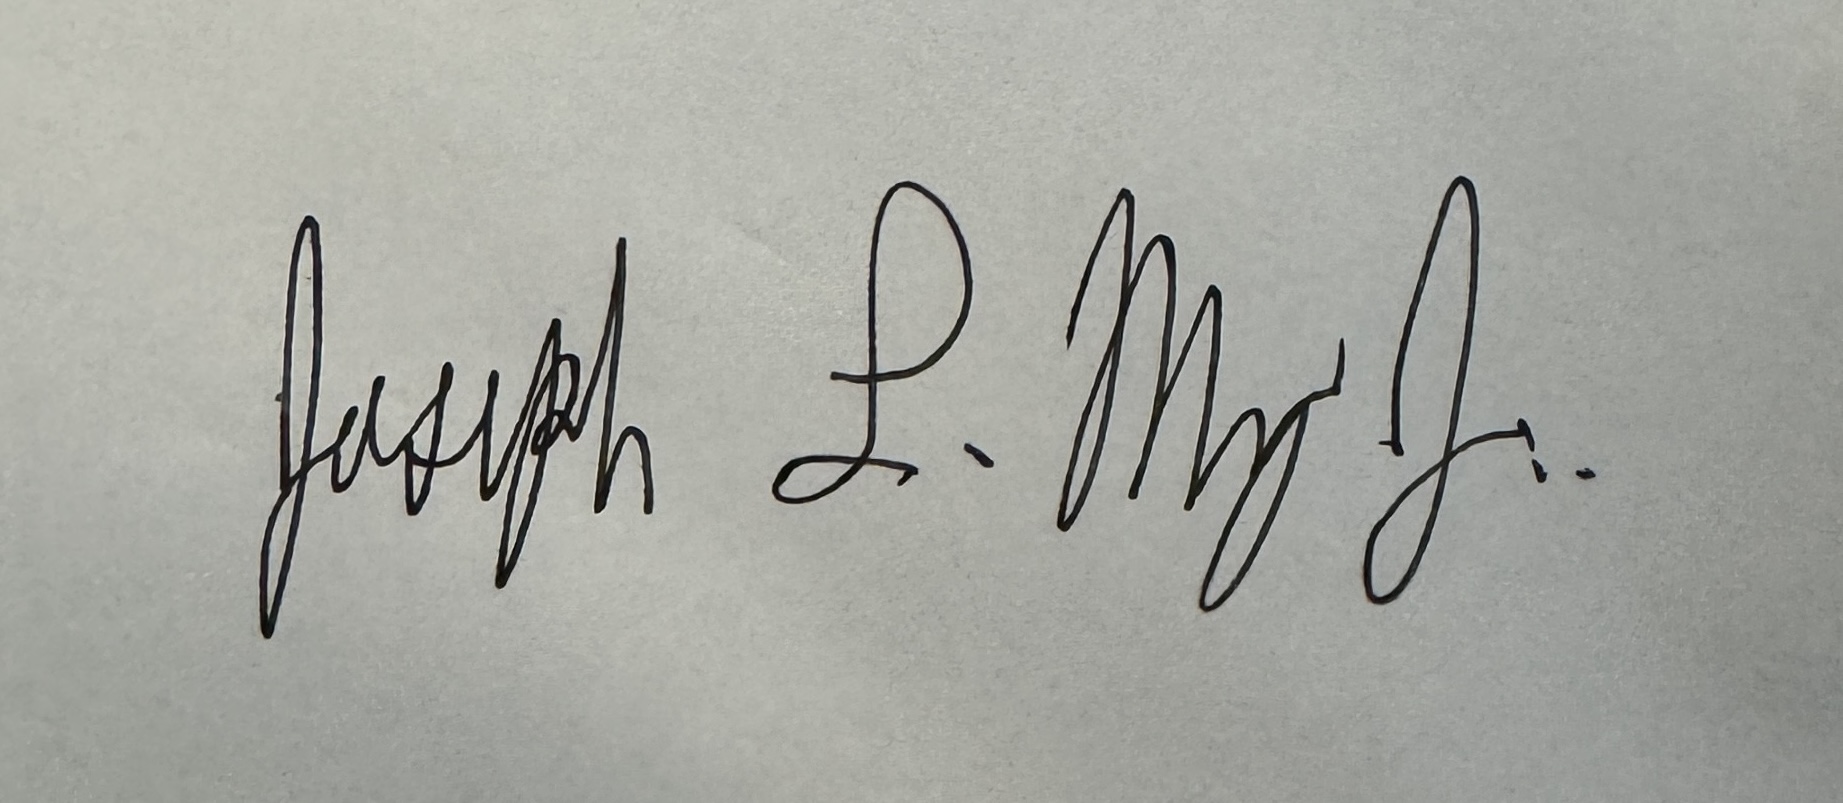 Joseph L. My Jr.